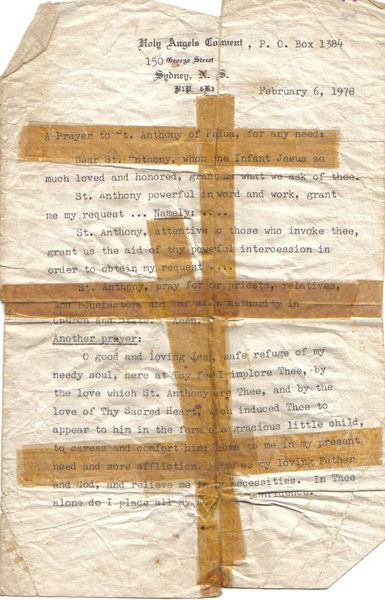 Holy Angels Convent, P. O. Box 1384
150 George Street
Sydney, N. S.
B1P 6K3
February 6, 1978
A Prayer to St. Anthony of Padua, for any need:
Dear St. Anthony, whom the Infant Jesus so
much loved and honored, grant us what we ask of thee.
St. Anthony powerful in word and work, grant
me my request ... Namely: ....
St. Anthony, attentive to those who invoke thee,
grant us the aid of thy powerful intercession in
order to obtain my request ....
St. Anthony, pray for our priests, relatives,
and benefactors and for all in authority in
Church and State. Amen.
Another prayer:
O good and loving Jesus, safe refuge of my
needy soul, here at Thy feet I implore Thee, by
the love which St. Anthony Thee, and by the
love of Thy Sacred Heart, which induced Thee to
appear to him in the form of a gracious little child,
to caress and comfort him; Come to me in my present
need and sore affliction. Come as my loving Father
and God, and relieve me in my necessities. In Thee
alone do I place all my confidence.